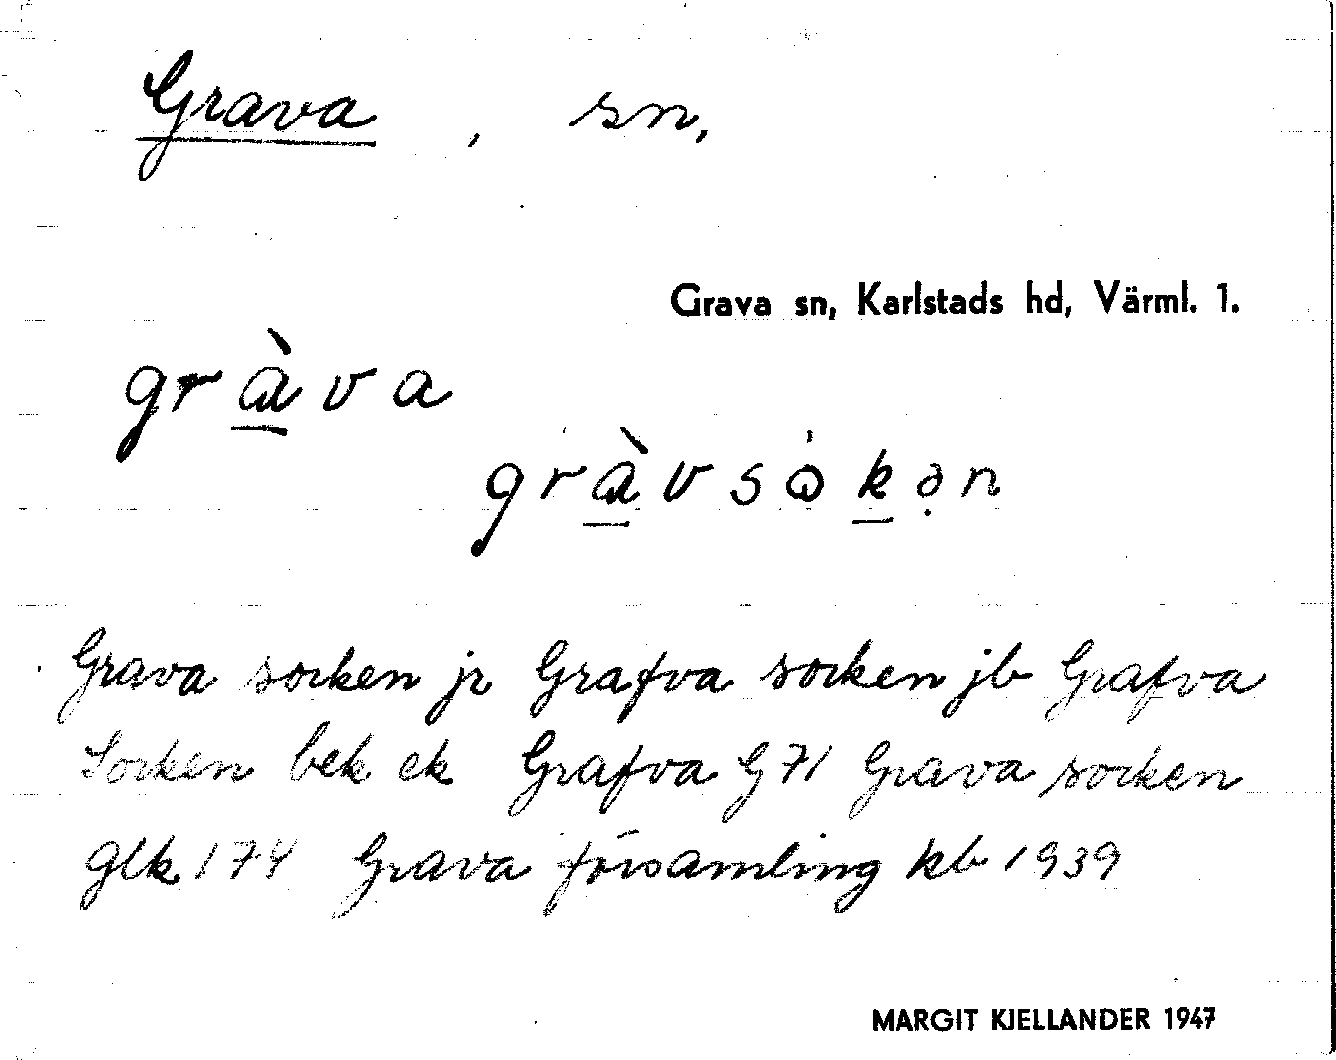 Grava, sn,
Grava sn, Karlstads hd, Värml. 1.
gràva
gràvsòkən
Grava socken jr Grafva socken jb Grafva
Socken bek ek Grafva G 71 Grava socken
glk 174 Grava församling kb 1939
MARGIT KJELLANDER 1947